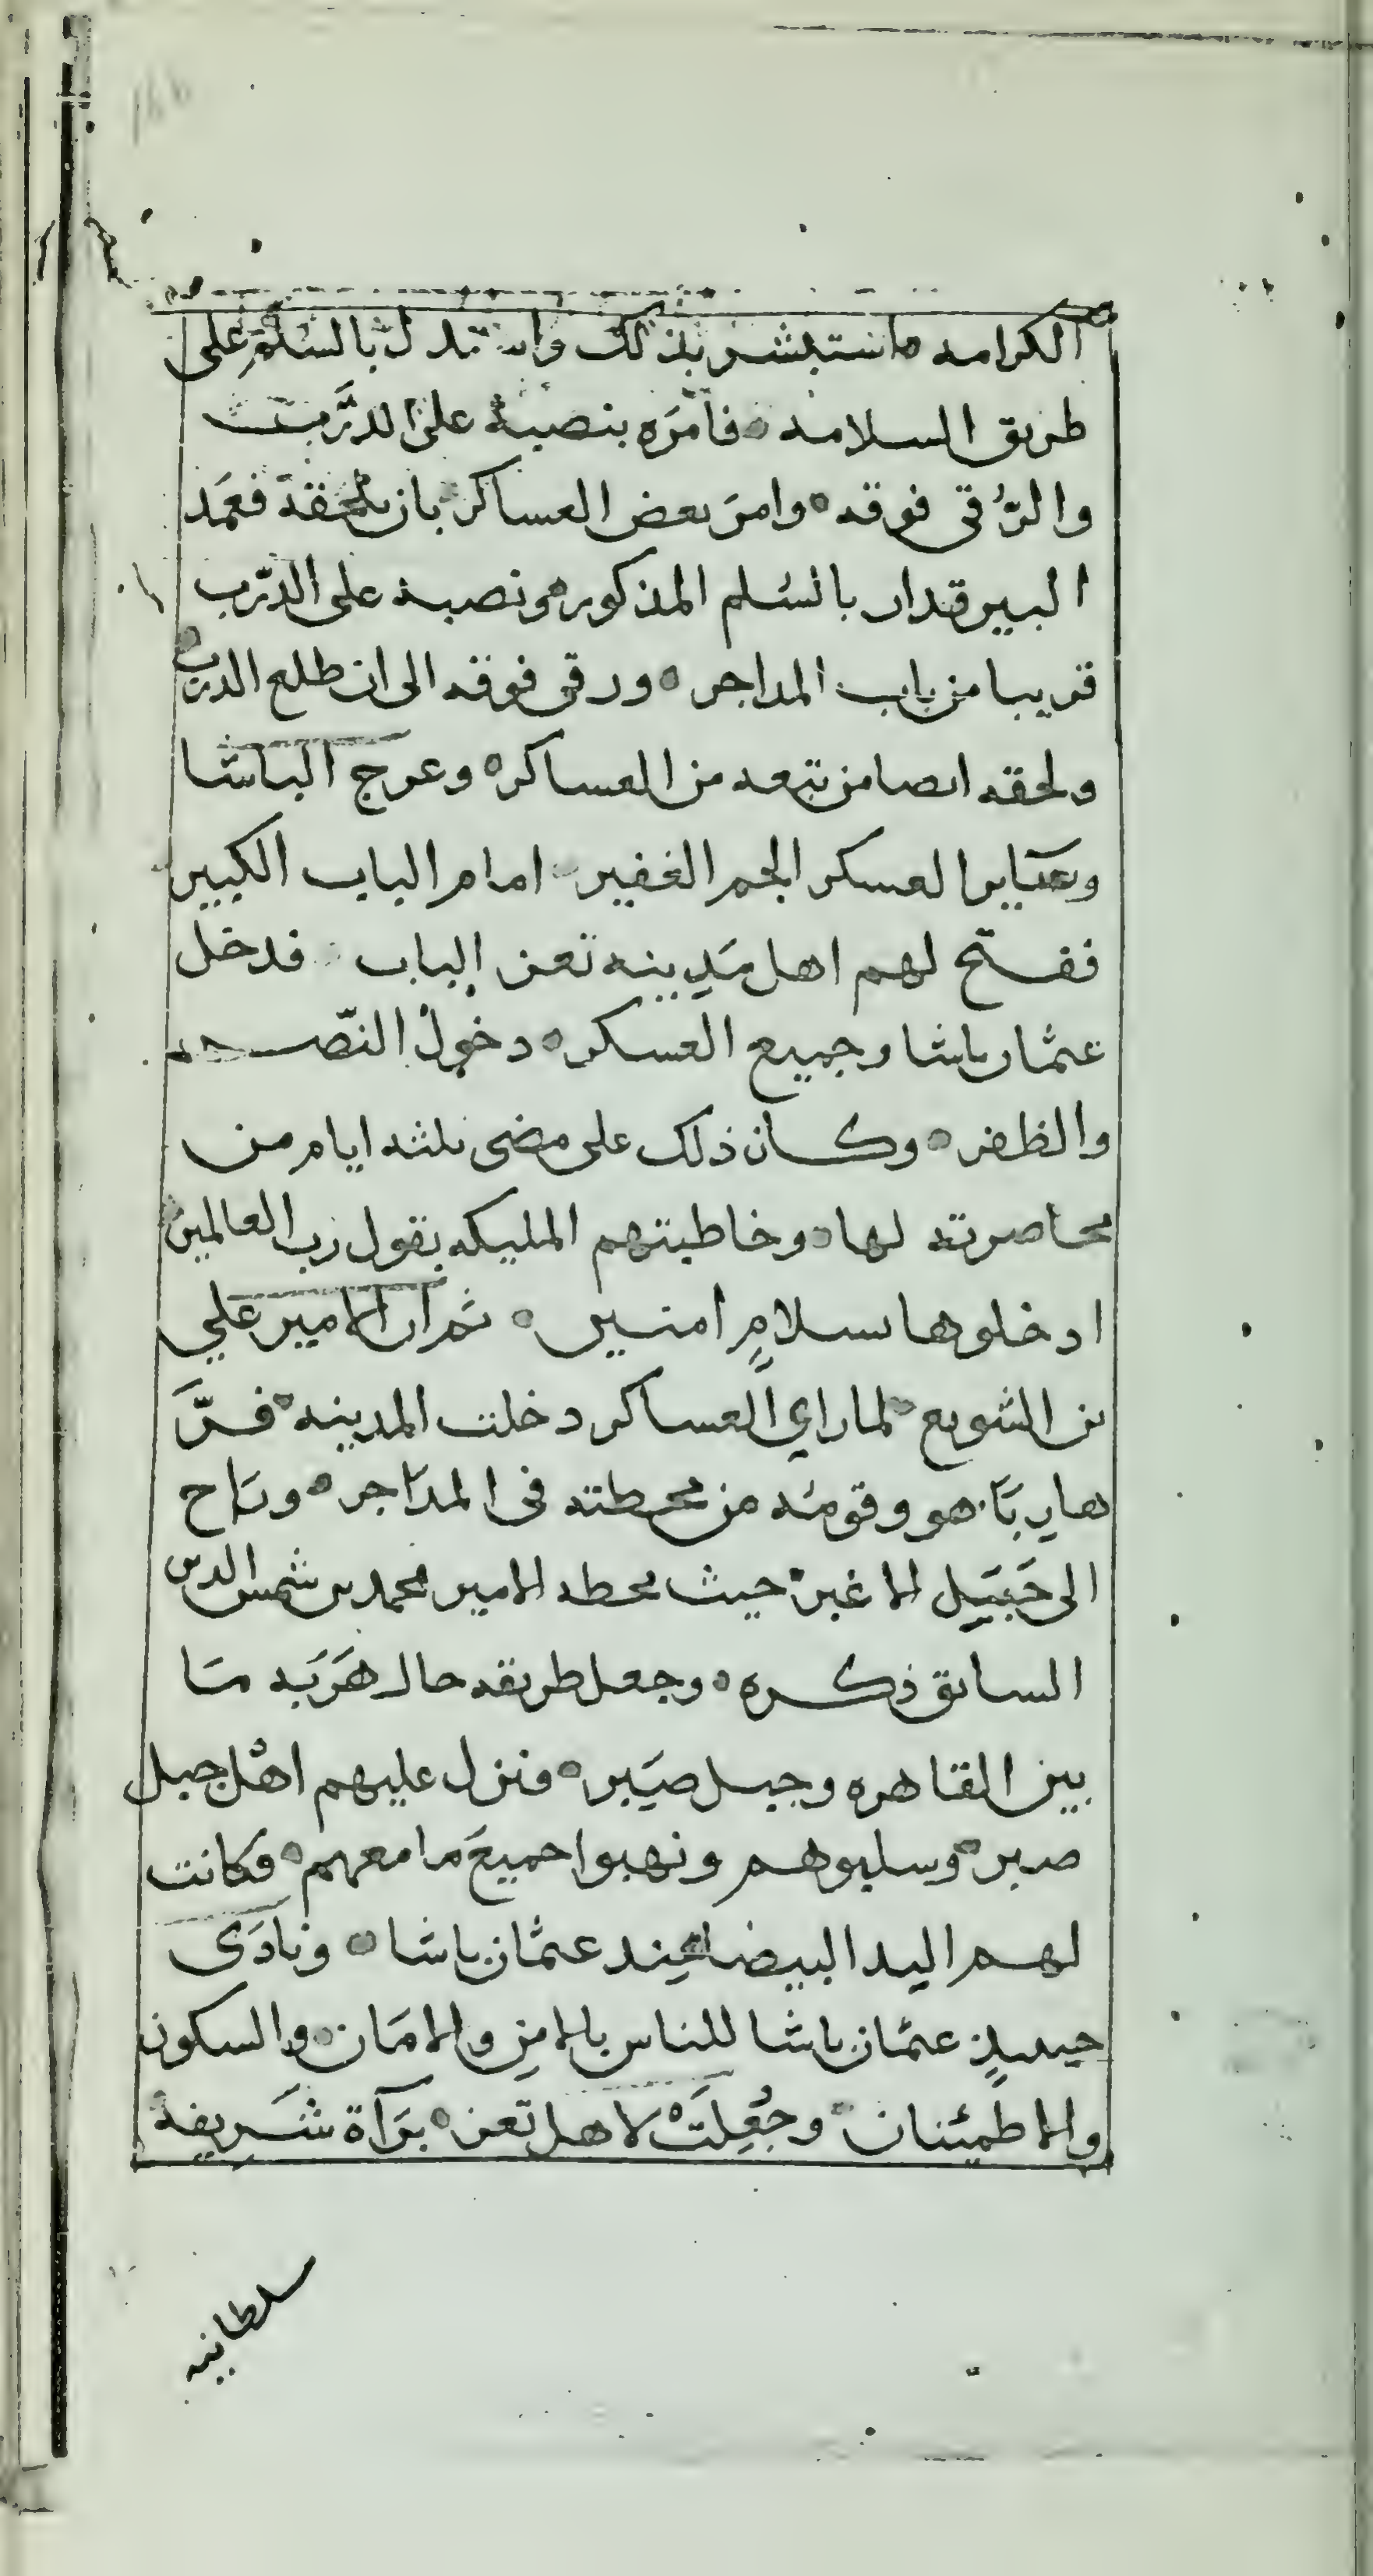 الكرامه فاستبشر بذلك واستدل بالسُلّم على
طريق السلامه ۰ فامَرَه بنصبه على الدَّرب
والرُّقي فوقه ۰ وامرَ بعض العساكر بان تلحقه فعَمَد
البيرقدار بالسُلم المذكور ۰ ونصبه على الدّرب
قريبا من باب المداجر ۰ ورقى فوقه الى ان طلع الدرب
ولحقه ايضا من تبعه من العساكر ۰ وعرج الباشا
وسَاير العسكر الجم الغفير ۰ امام الباب الكبير
ففتح لهم اهل مَدِينه تعز الباب ۰ فدخل
عثمان باشا وجميع العسكر ۰ دخولُ النّصر
والظفر ۰ وكان ذلك على مضى ثلثه ايام من
محاصرته لها ۰ وخاطبتهم المليكه بقول رب العالمين
ادخلوها بسلامٍ امنين ۰ ثم ان الامير علي
بن الشويع ۰ لما راي العساكر دخلت المدينه ۰ فرَّ
هاربًا هو وقومُه من محطته في المدَاجر ۰ ورَاح
الى جَبَيل الاغبر ۰ حيث محطه الامير محمد بن شمس الدين
السابق ذكره ۰ وجعل طريقه حال هَرَبه مَا
بين القاهره وجبل صبَر ۰ فنزل عليهم اهل جبل
صبر ۰ وسلبوهم ونهبوا جميعَ ما معهم ۰ فكانت
لهم اليد البيضا عند عثمان باشا ۰ ونادَى
حينيذٍ عثمان باشا للناس بالامنِ والامَان ۰ والسكون
والاطمئنان ۰ وجُعِلَتْ لاهل تعز ۰ برَآة شَريفة
سلطانيه